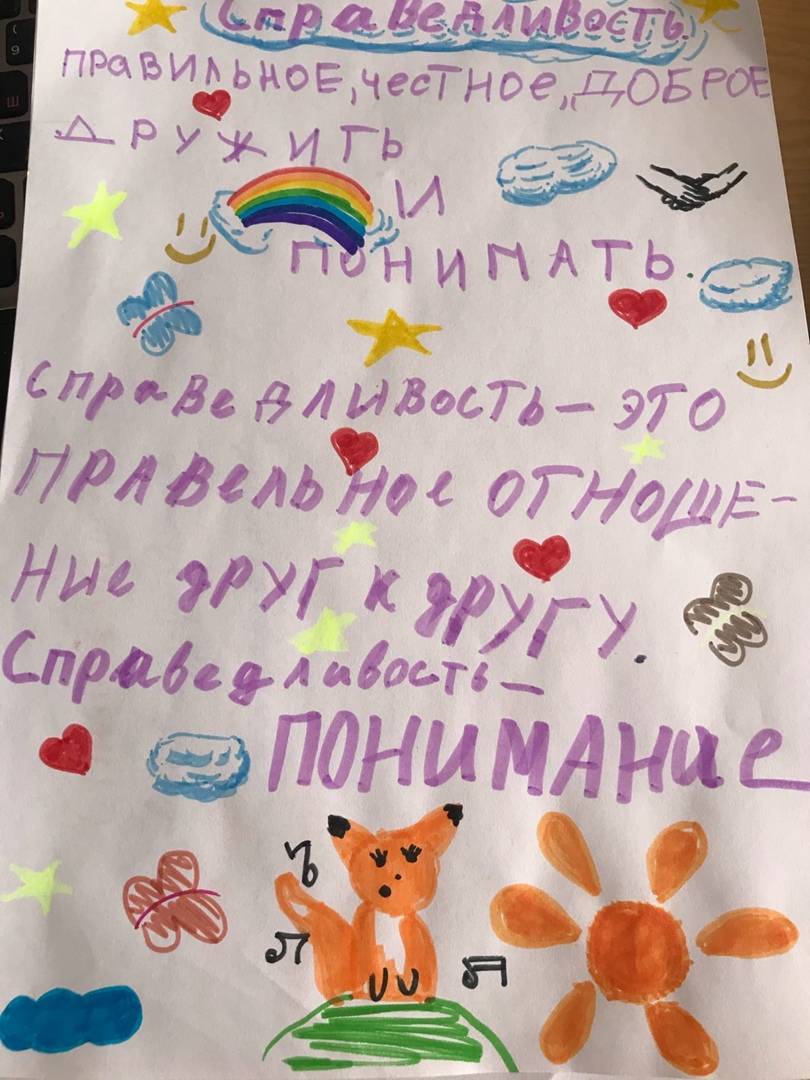 Справедливость
правильное, честное, доброе
дружить
и
понимать.
Справедливость – это
правельное отноше-
ние друг к другу.
Справедливость –
ПОНИМАНие